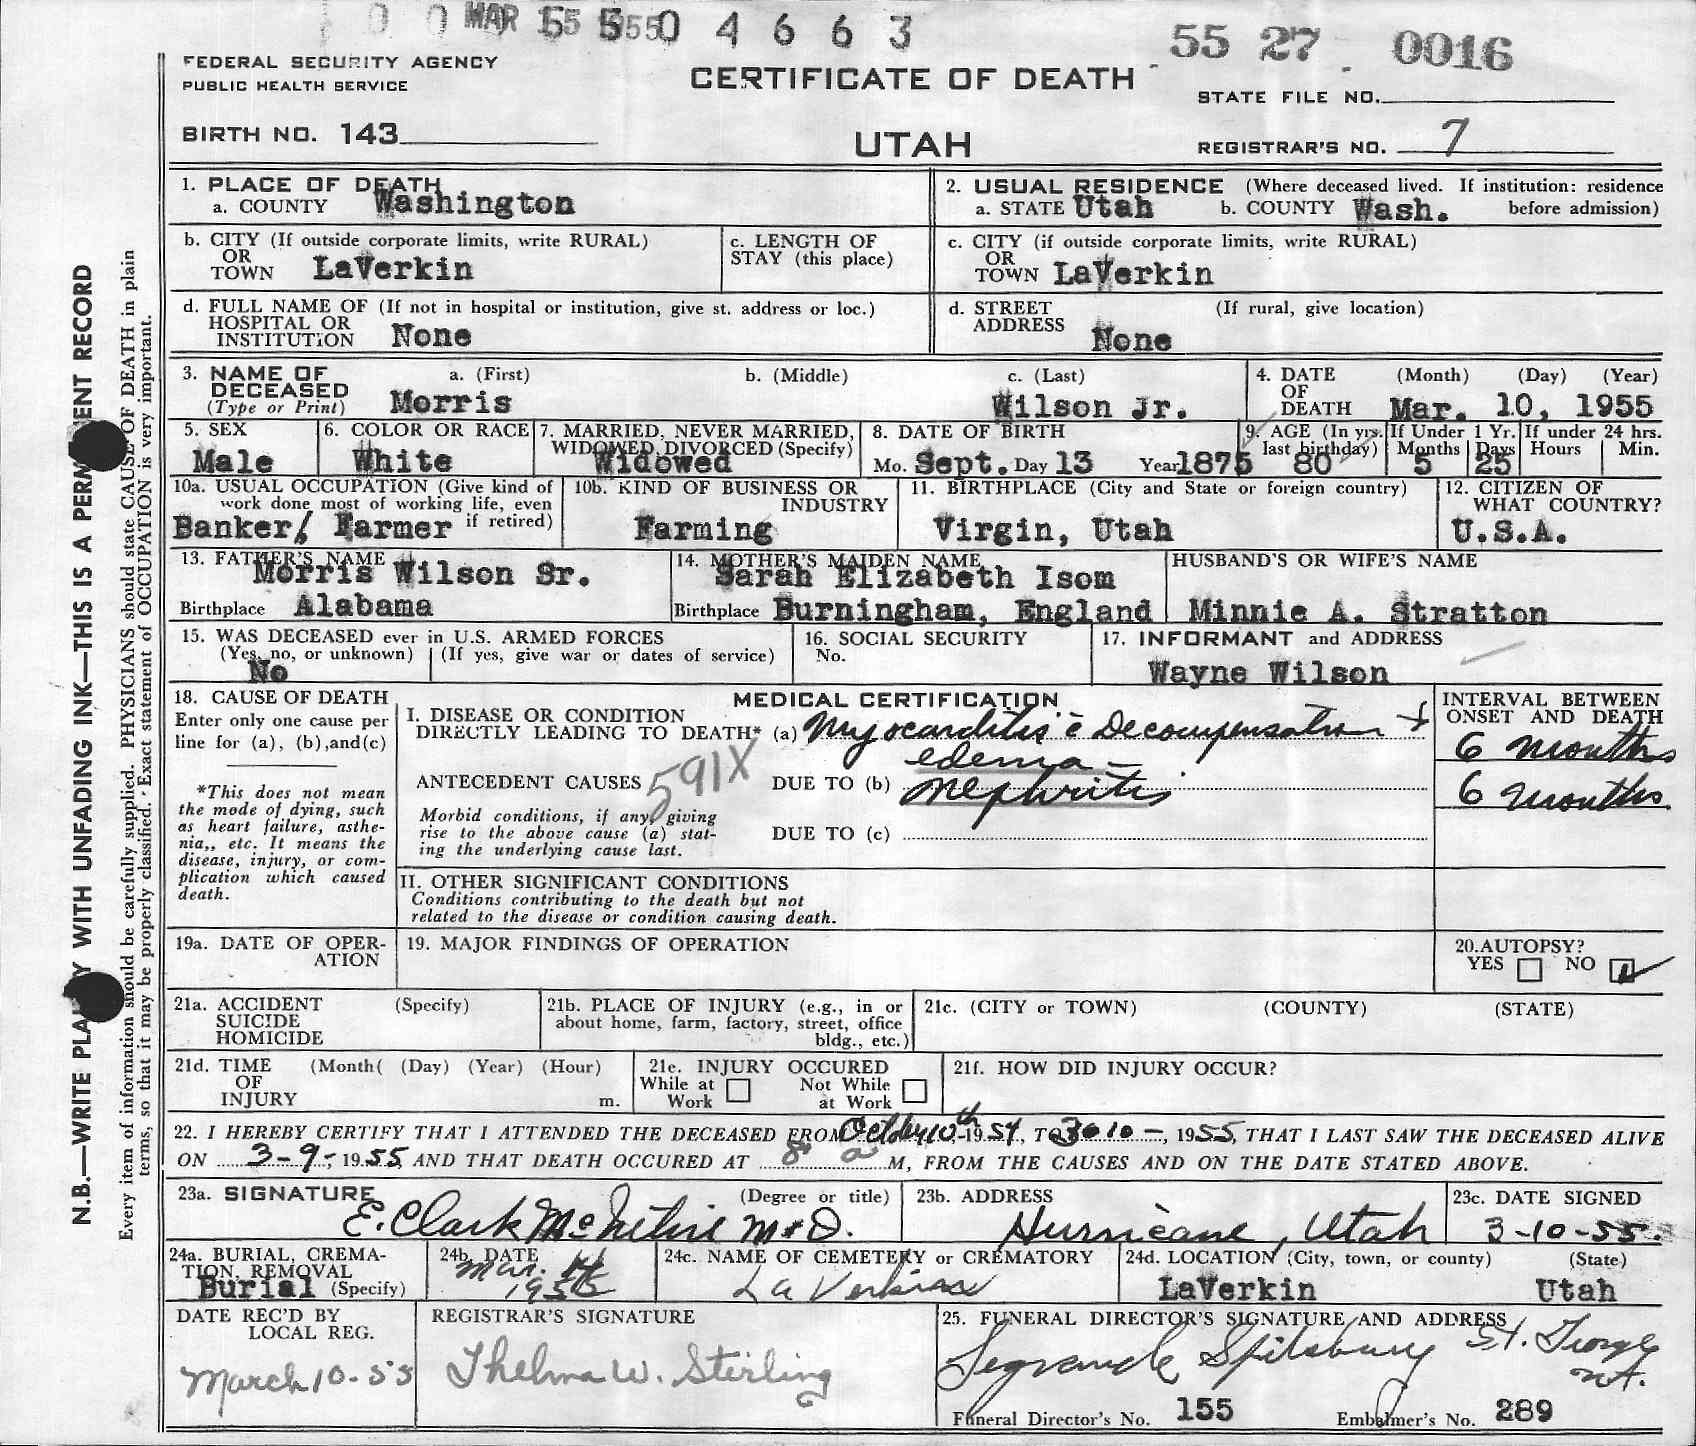 MAR 15 1955 0 4 6 6 3
55 27 0016
FEDERAL SECURITY AGENCY
PUBLIC HEALTH SERVICE
CERTIFICATE OF DEATH
STATE FILE NO.
BIRTH NO. 143
UTAH
REGISTRAR'S NO. 7
N.B.—WRITE PLAINLY WITH UNFADING INK—THIS IS A PERMANENT RECORD
Every item of information should be carefully supplied. PHYSICIANS should state CAUSE OF DEATH in plain
terms, so that it may be properly classified. Exact statement of OCCUPATION is very important.
1. PLACE OF DEATH
a. COUNTY Washington
2. USUAL RESIDENCE (Where deceased lived. If institution: residence
a. STATE Utah b. COUNTY Wash. before admission)
b. CITY (If outside corporate limits, write RURAL)
OR
TOWN LaVerkin
c. LENGTH OF
STAY (this place)
c. CITY (if outside corporate limits, write RURAL)
OR
TOWN LaVerkin
d. FULL NAME OF (If not in hospital or institution, give st. address or loc.)
HOSPITAL OR
INSTITUTION None
d. STREET (If rural, give location)
ADDRESS None
3. NAME OF a. (First) b. (Middle) c. (Last)
DECEASED
(Type or Print) Morris Wilson Jr.
4. DATE (Month) (Day) (Year)
OF
DEATH Mar. 10, 1955
5. SEX
Male
6. COLOR OR RACE
White
7. MARRIED, NEVER MARRIED,
WIDOWED, DIVORCED (Specify)
Widowed
8. DATE OF BIRTH
Mo. Sept. Day 13 Year 1875
9. AGE (In yrs.
last birthday) 80
If Under 1 Yr.
Months Days
5 25
If under 24 hrs.
Hours Min.
10a. USUAL OCCUPATION (Give kind of
work done most of working life, even
if retired)
Banker/ Farmer
10b. KIND OF BUSINESS OR
INDUSTRY
Farming
11. BIRTHPLACE (City and State or foreign country)
Virgin, Utah
12. CITIZEN OF
WHAT COUNTRY?
U.S.A.
13. FATHER'S NAME
Morris Wilson Sr.
Birthplace Alabama
14. MOTHER'S MAIDEN NAME
Sarah Elizabeth Isom
Birthplace Burningham, England
HUSBAND'S OR WIFE'S NAME
Minnie A. Stratton
15. WAS DECEASED ever in U.S. ARMED FORCES
(Yes, no, or unknown) (If yes, give war or dates of service)
No
16. SOCIAL SECURITY
No.
17. INFORMANT and ADDRESS
Wayne Wilson
18. CAUSE OF DEATH
Enter only one cause per
line for (a), (b),and(c)
*This does not mean
the mode of dying, such
as heart failure, asthe-
nia,, etc. It means the
disease, injury, or com-
plication which caused
death.
MEDICAL CERTIFICATION
I. DISEASE OR CONDITION
DIRECTLY LEADING TO DEATH* (a) Myocarditis c̄ Decompensation +
edema -
ANTECEDENT CAUSES 591X DUE TO (b) nephritis
Morbid conditions, if any, giving
rise to the above cause (a) stat-
ing the underlying cause last.
DUE TO (c)
INTERVAL BETWEEN
ONSET AND DEATH
6 months
6 months
II. OTHER SIGNIFICANT CONDITIONS
Conditions contributing to the death but not
related to the disease or condition causing death.
19a. DATE OF OPER-
ATION
19. MAJOR FINDINGS OF OPERATION
20.AUTOPSY?
YES NO
21a. ACCIDENT (Specify)
SUICIDE
HOMICIDE
21b. PLACE OF INJURY (e.g., in or
about home, farm, factory, street, office
bldg., etc.)
21c. (CITY or TOWN) (COUNTY) (STATE)
21d. TIME (Month( (Day) (Year) (Hour)
OF
INJURY m.
21e. INJURY OCCURED
While at Work Not While at Work
21f. HOW DID INJURY OCCUR?
22. I HEREBY CERTIFY THAT I ATTENDED THE DECEASED FROM October 10th-1954, TO 3-10-, 1955, THAT I LAST SAW THE DECEASED ALIVE
ON 3-9-, 1955, AND THAT DEATH OCCURED AT 8 a M, FROM THE CAUSES AND ON THE DATE STATED ABOVE.
23a. SIGNATURE (Degree or title)
E. Clark McIntire M.D.
23b. ADDRESS
Hurricane, Utah
23c. DATE SIGNED
3-10-55.
24a. BURIAL, CREMA-
TION, REMOVAL
Burial (Specify)
24b. DATE
Mar.
1955
24c. NAME OF CEMETERY or CREMATORY
La Verkin
24d. LOCATION (City, town, or county) (State)
LaVerkin Utah
DATE REC'D BY
LOCAL REG.
March 10-55
REGISTRAR'S SIGNATURE
Thelma W. Stirling
25. FUNERAL DIRECTOR'S SIGNATURE AND ADDRESS
Legrande Spilsbury St. George
Ut.
Funeral Director's No. 155 Embalmer's No. 289